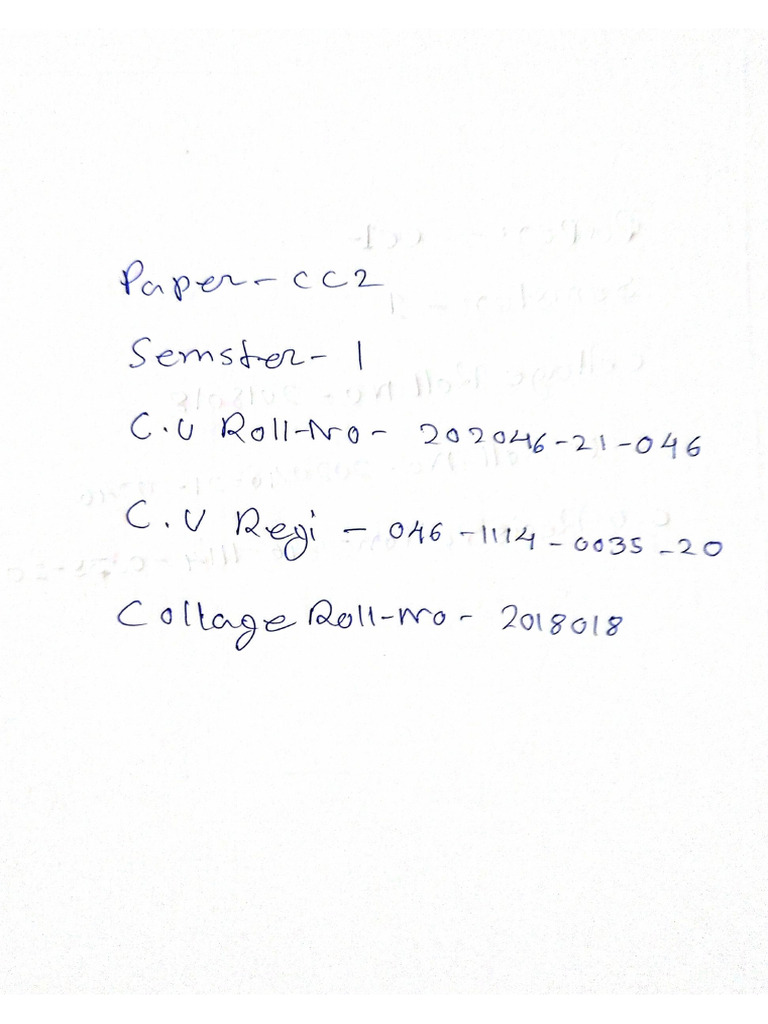 Paper - CC2
Semster - 1
C.U Roll-No - 202046-21-046
C.U Regi - 046-1114-0035-20
Collage Roll-No - 2018018